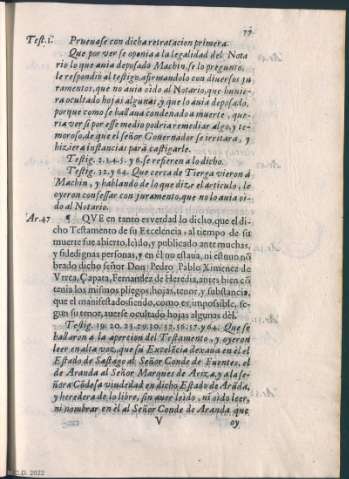 77
Test. 1. Prueuase con dicha retratacion primera.
Que por ver se oponia a la legalidad del Nota
rio lo que auia deposado Machin, se lo pregunto,
le respondiò al testigo, afirmandolo con diuersos ju
ramentos, que no auia oido al Notario, que huuie-
ra ocultado hojas algunas, y que lo auia deposado,
porque como se hallaua condenado a muerte, que-
ria ver si por esse medio podria remediar algo, y te-
moroso, de que el señor Gouernador se irritara, y
hiziera instancias para castigarle.
Testig. 2. 3. 4. 5. 96. se refieren a lo dicho.
Testig. 22. y 64. Que cerca de Tierga vieron à
Machin, y hablando de lo que dize el articulo, le
oyeron confessar con juramento, que no lo auia oi-
do al Notario.
Ar. 47 ¶ QVE en tanto es verdad lo dicho, que el di-
cho Testamento de su Excelencia, al tiempo de su
muerte fue abierto, leido, y publicado ante muchas,
y fidedignas personas, y en èl no estaua, ni estuuo nō
brado dicho señor Don Pedro Pablo Ximenez de
Vrrea, Çapata, Fernandez de Heredia, antes bien cō
tenia los mismos pliegos, hojas, tenor, y substancia,
que el manifestado, siendo, como es, imposible, se-
gun su tenor, auerse ocultado hojas algunas dèl.
Testig. 19. 20. 23. 29. 30. 52. 56. 57. y 64. Que se
hallaron a la apercion del Testamento, y oyeron
leer en alta voz, que su Excelēcia dexaua en èl el
Estado de Sastago al Señor Conde de Fuentes, el
de Aranda al Señor Marques de Ariza, y a la se-
ñora Cōdesa viudedad en dicho Estado de Arāda,
y heredera de lo libre, sin auer leido, ni oido leer,
ni nombrar en èl al Señor Conde de Aranda, que
V oy
2022